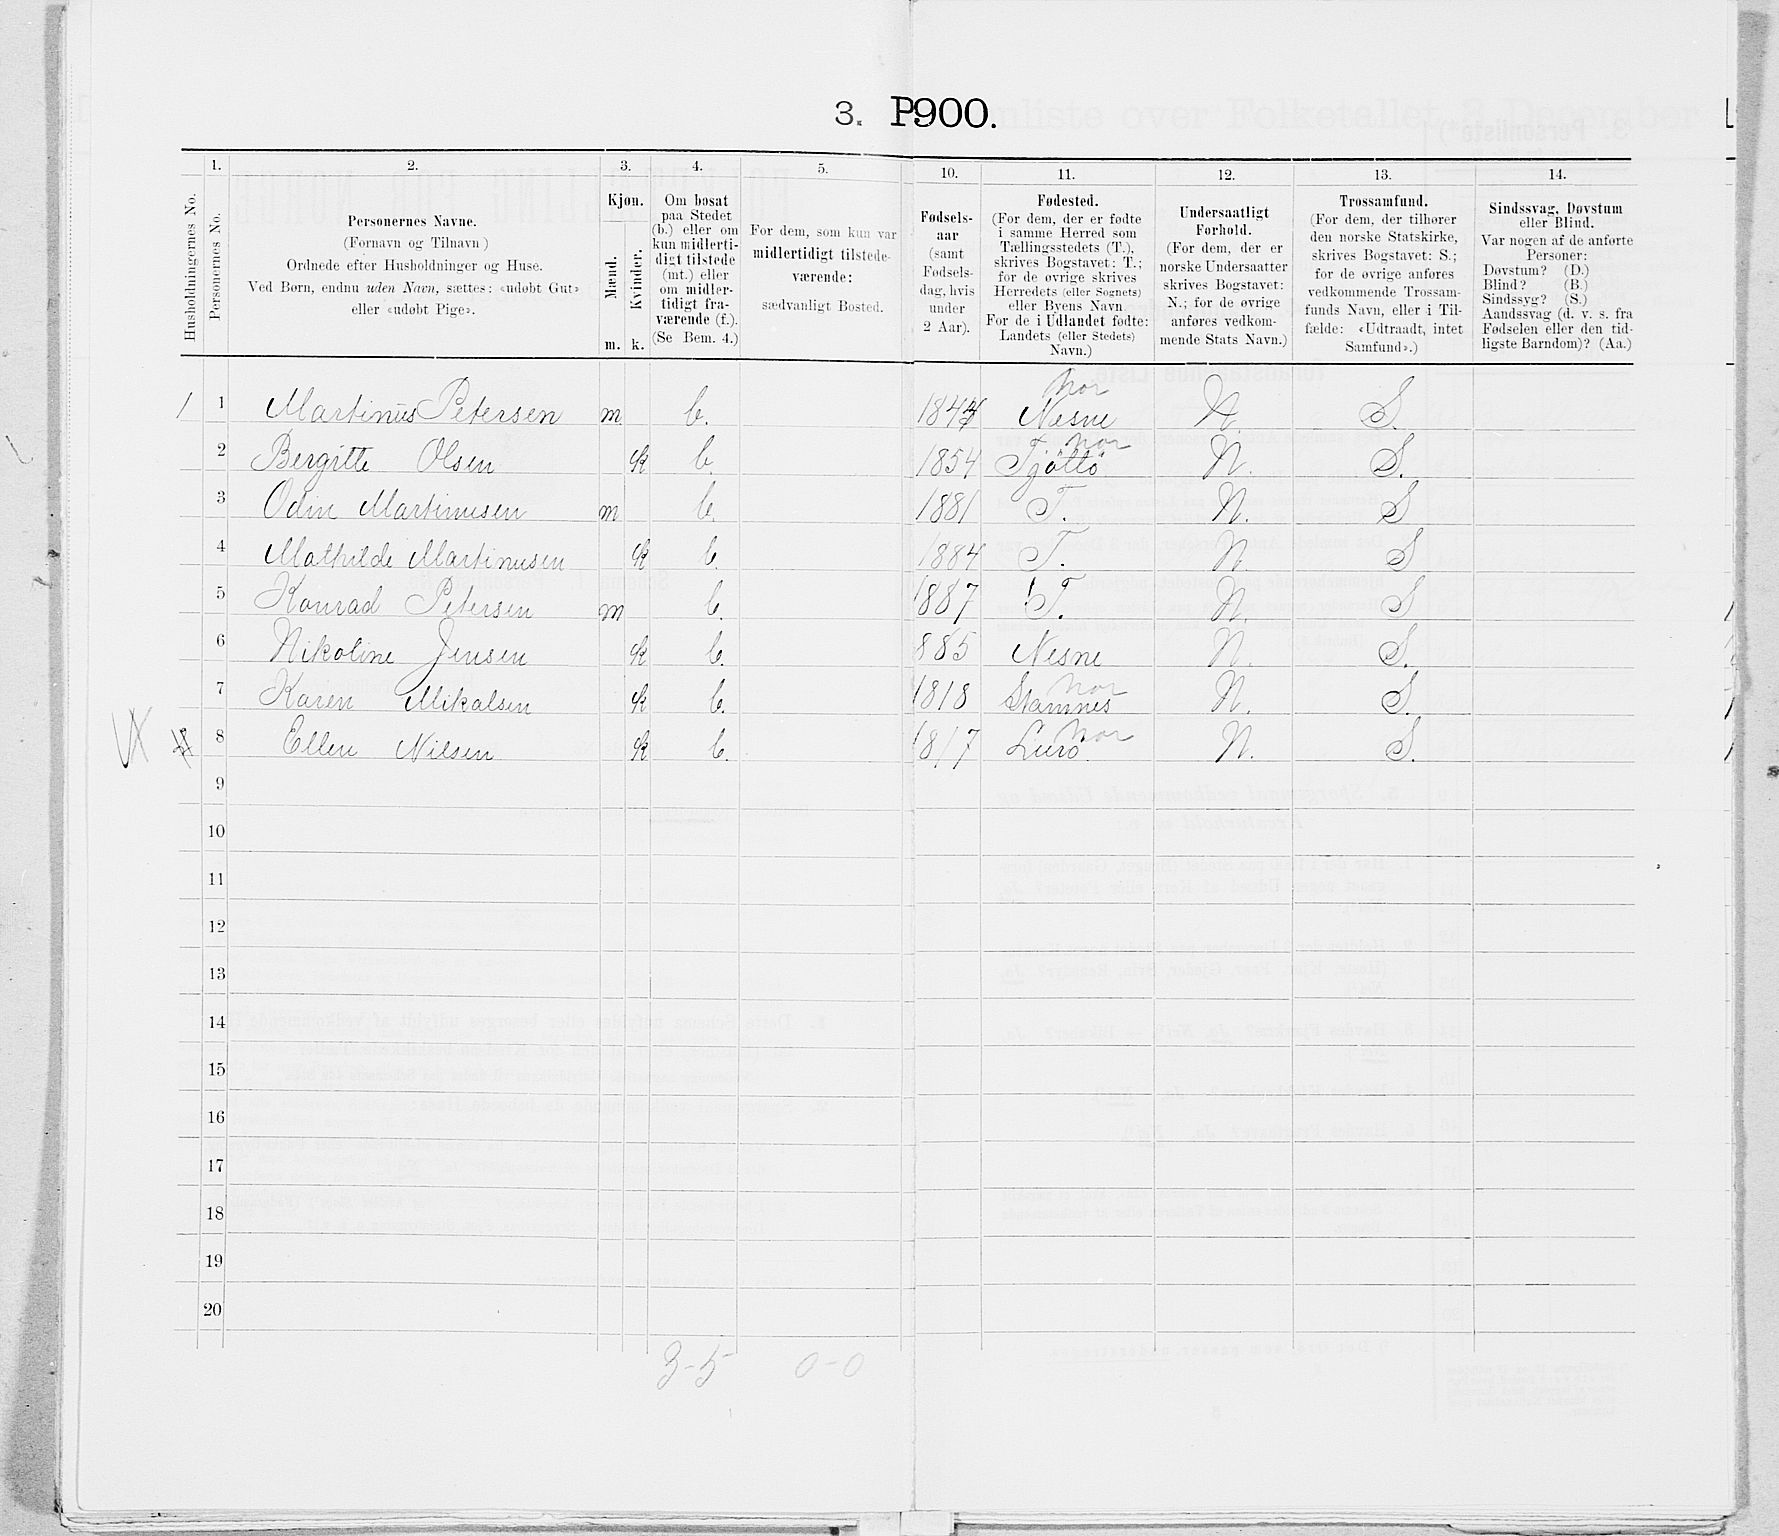 3. P900.
1. 2. 3. 4. 5. 10. 11. 12. 13. 14.
Husholdningernes No.
Personernes No.
Personernes Navne.
(Fornavn og Tilnavn)
Ordnede efter Husholdninger og Huse.
Ved Børn, endnu uden Navn, sættes: «udøbt Gut»
eller «udøbt Pige».
Kjøn.
Mænd.
Kvinder.
m. k.
Om bosat
paa Stedet
(b.) eller om
kun midlerti-
digt tilstede
(mt.) eller
om midler-
tidigt fra-
værende (f.).
(Se Bem. 4.)
For dem, som kun var
midlertidigt tilstede-
værende:
sædvanligt Bosted.
Fødsels-
aar
(samt
Fødsels-
dag, hvis
under
2 Aar).
Fødested.
(For dem, der er fødte
i samme Herred som
Tællingsstedets (T.),
skrives Bogstavet: T.;
for de øvrige skrives
Herredets (eller Sognets)
eller Byens Navn.
For de i Udlandet fødte:
Landets (eller Stedets)
Navn.)
Undersaatligt
Forhold.
(For dem, der er
norske Undersaatter
skrives Bogstavet:
N.; for de øvrige
anføres vedkom-
mende Stats Navn.)
Trossamfund.
(For dem, der tilhører
den norske Statskirke,
skrives Bogstavet: S.;
for de øvrige anføres
vedkommende Trossam-
funds Navn, eller i Til-
fælde: «Udtraadt, intet
Samfund».)
Sindssvag, Døvstum
eller Blind.
Var nogen af de anførte
Personer:
Døvstum? (D.)
Blind? (B.)
Sindssyg? (S.)
Aandssvag (d. v. s. fra
Fødselen eller den tid-
ligste Barndom)? (Aa.)
nor
1 1 Martinus Petersen m b. 1844 Nesne N. S.
nor
2 Bergitte Olsen k b. 1854 Tjöttö N. S.
3 Odin Martinusen m b. 1881 T. N. S
4 Mathilde Martinusen k b. 1884 T. N. S
5 Konrad Petersen m b. 1887 T. N. S
6 Nikoline Jensen k b. 885 Nesne N. S.
nor
7 Karen Mikalsen k b. 1818 Stamnes N. S.
nor
8 Ellen Nilsen k b. 1817 Lurö. N. S.
9
10
11
12
13
14
15
16
17
18
19
20
3-5 0-0